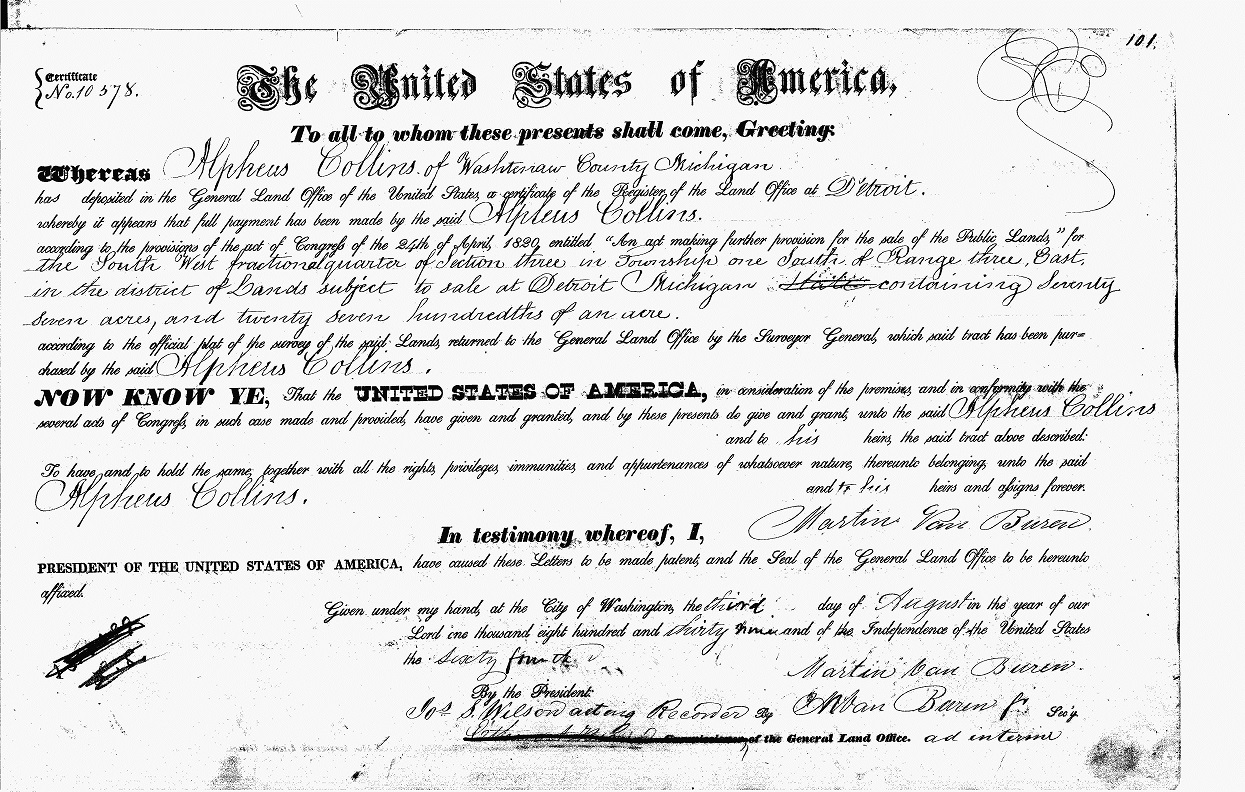 101.
Certificate
No. 10578.
The United States of America,
To all to whom these presents shall come, Greeting:
Whereas Alpheus Collins of Washtenaw County Michigan
has deposited in the General Land Office of the United States, a certificate of the Register of the Land Office at Detroit.
whereby it appears that full payment has been made by the said Alpheus Collins.
according to the provisions of the act of Congress of the 24th of April, 1820, entitled, "An act making further provision for the sale of the Public Lands," for
the South West fractional quarter of Section three in Township one South of Range three, East,
in the district of Lands subject to sale at Detroit Michigan State containing Seventy
seven acres, and twenty seven hundredths of an acre.
according to the official plat of the survey of the said Lands, returned to the General Land Office by the Surveyor General, which said tract has been pur=
chased by the said Alpheus Collins.
NOW KNOW YE, That the UNITED STATES OF AMERICA, in consideration of the premises, and in conformity with the
several acts of Congress, in such case made and provided, have given and granted, and by these presents do give and grant, unto the said Alpheus Collins
and to his heirs, the said tract above described:
To have and to hold the same, together with all the rights, privileges, immunities, and appurtenances of whatsoever nature, thereunto belonging, unto the said
Alpheus Collins. and to his heirs and assigns forever.
In testimony whereof, I, Martin Van Buren.
PRESIDENT OF THE UNITED STATES OF AMERICA, have caused these Letters to be made patent, and the Seal of the General Land Office to be hereunto
affixed.
Given under my hand, at the City of Washington, the third day of August in the year of our
Lord one thousand eight hundred and thirty nine and of the Independence of the United States
the Sixty fourth
Martin Van Buren.
By the President:
Jos. S. Wilson acting Recorder By M Van Buren Jr. Sec'y.
Commissioner of the General Land Office. ad interim